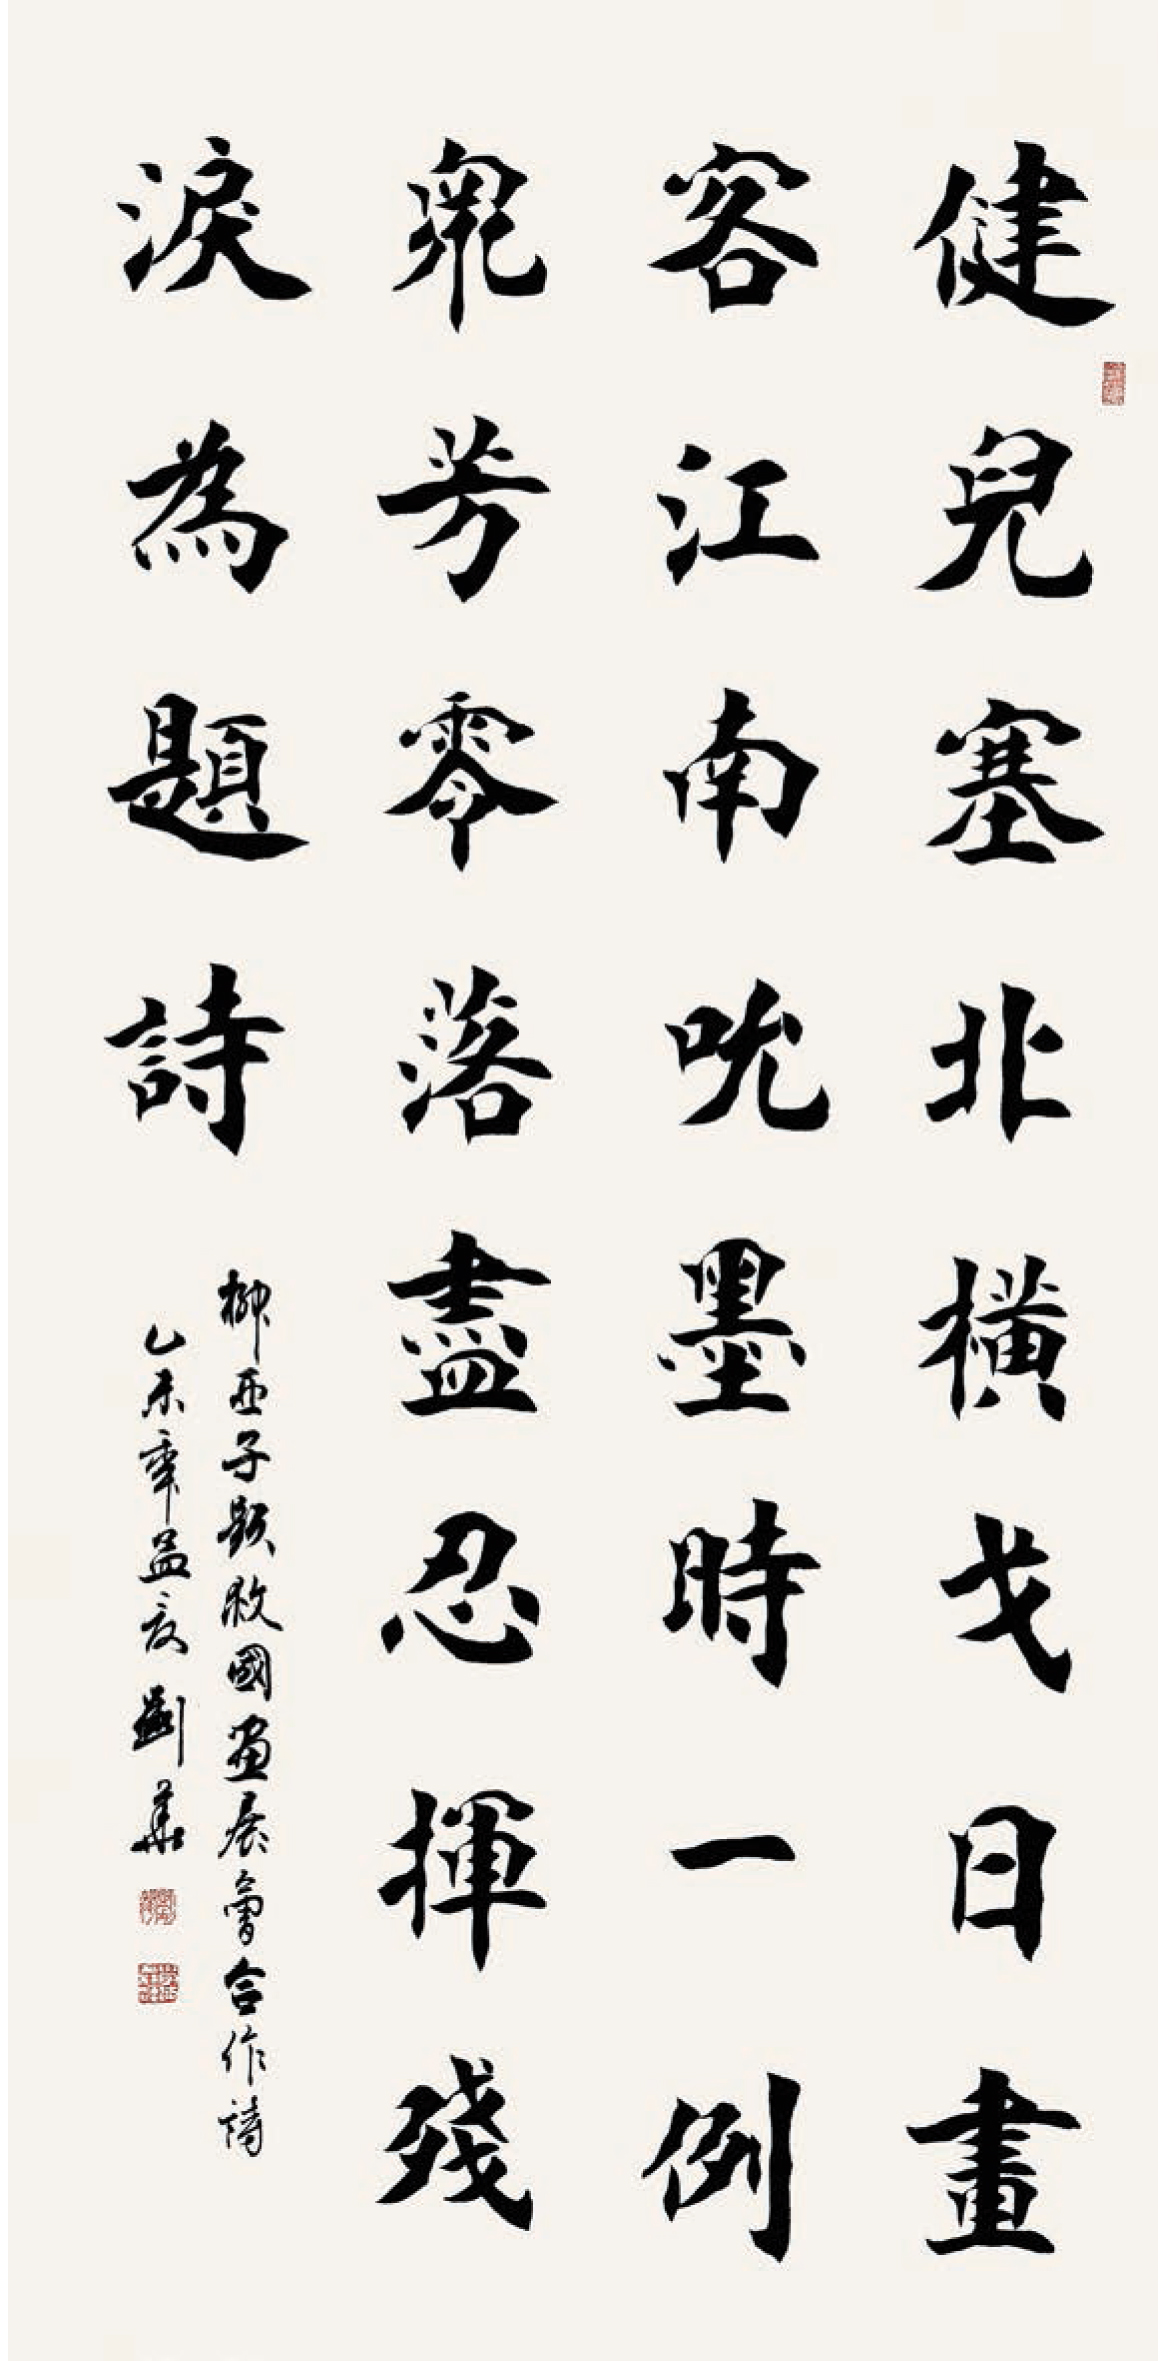 健兒塞北橫戈日畫
客江南吮墨時一例
衆芳零落盡忍揮殘
淚為題詩
柳亞子題救國畫展會合作詩
乙未年孟夏劉華